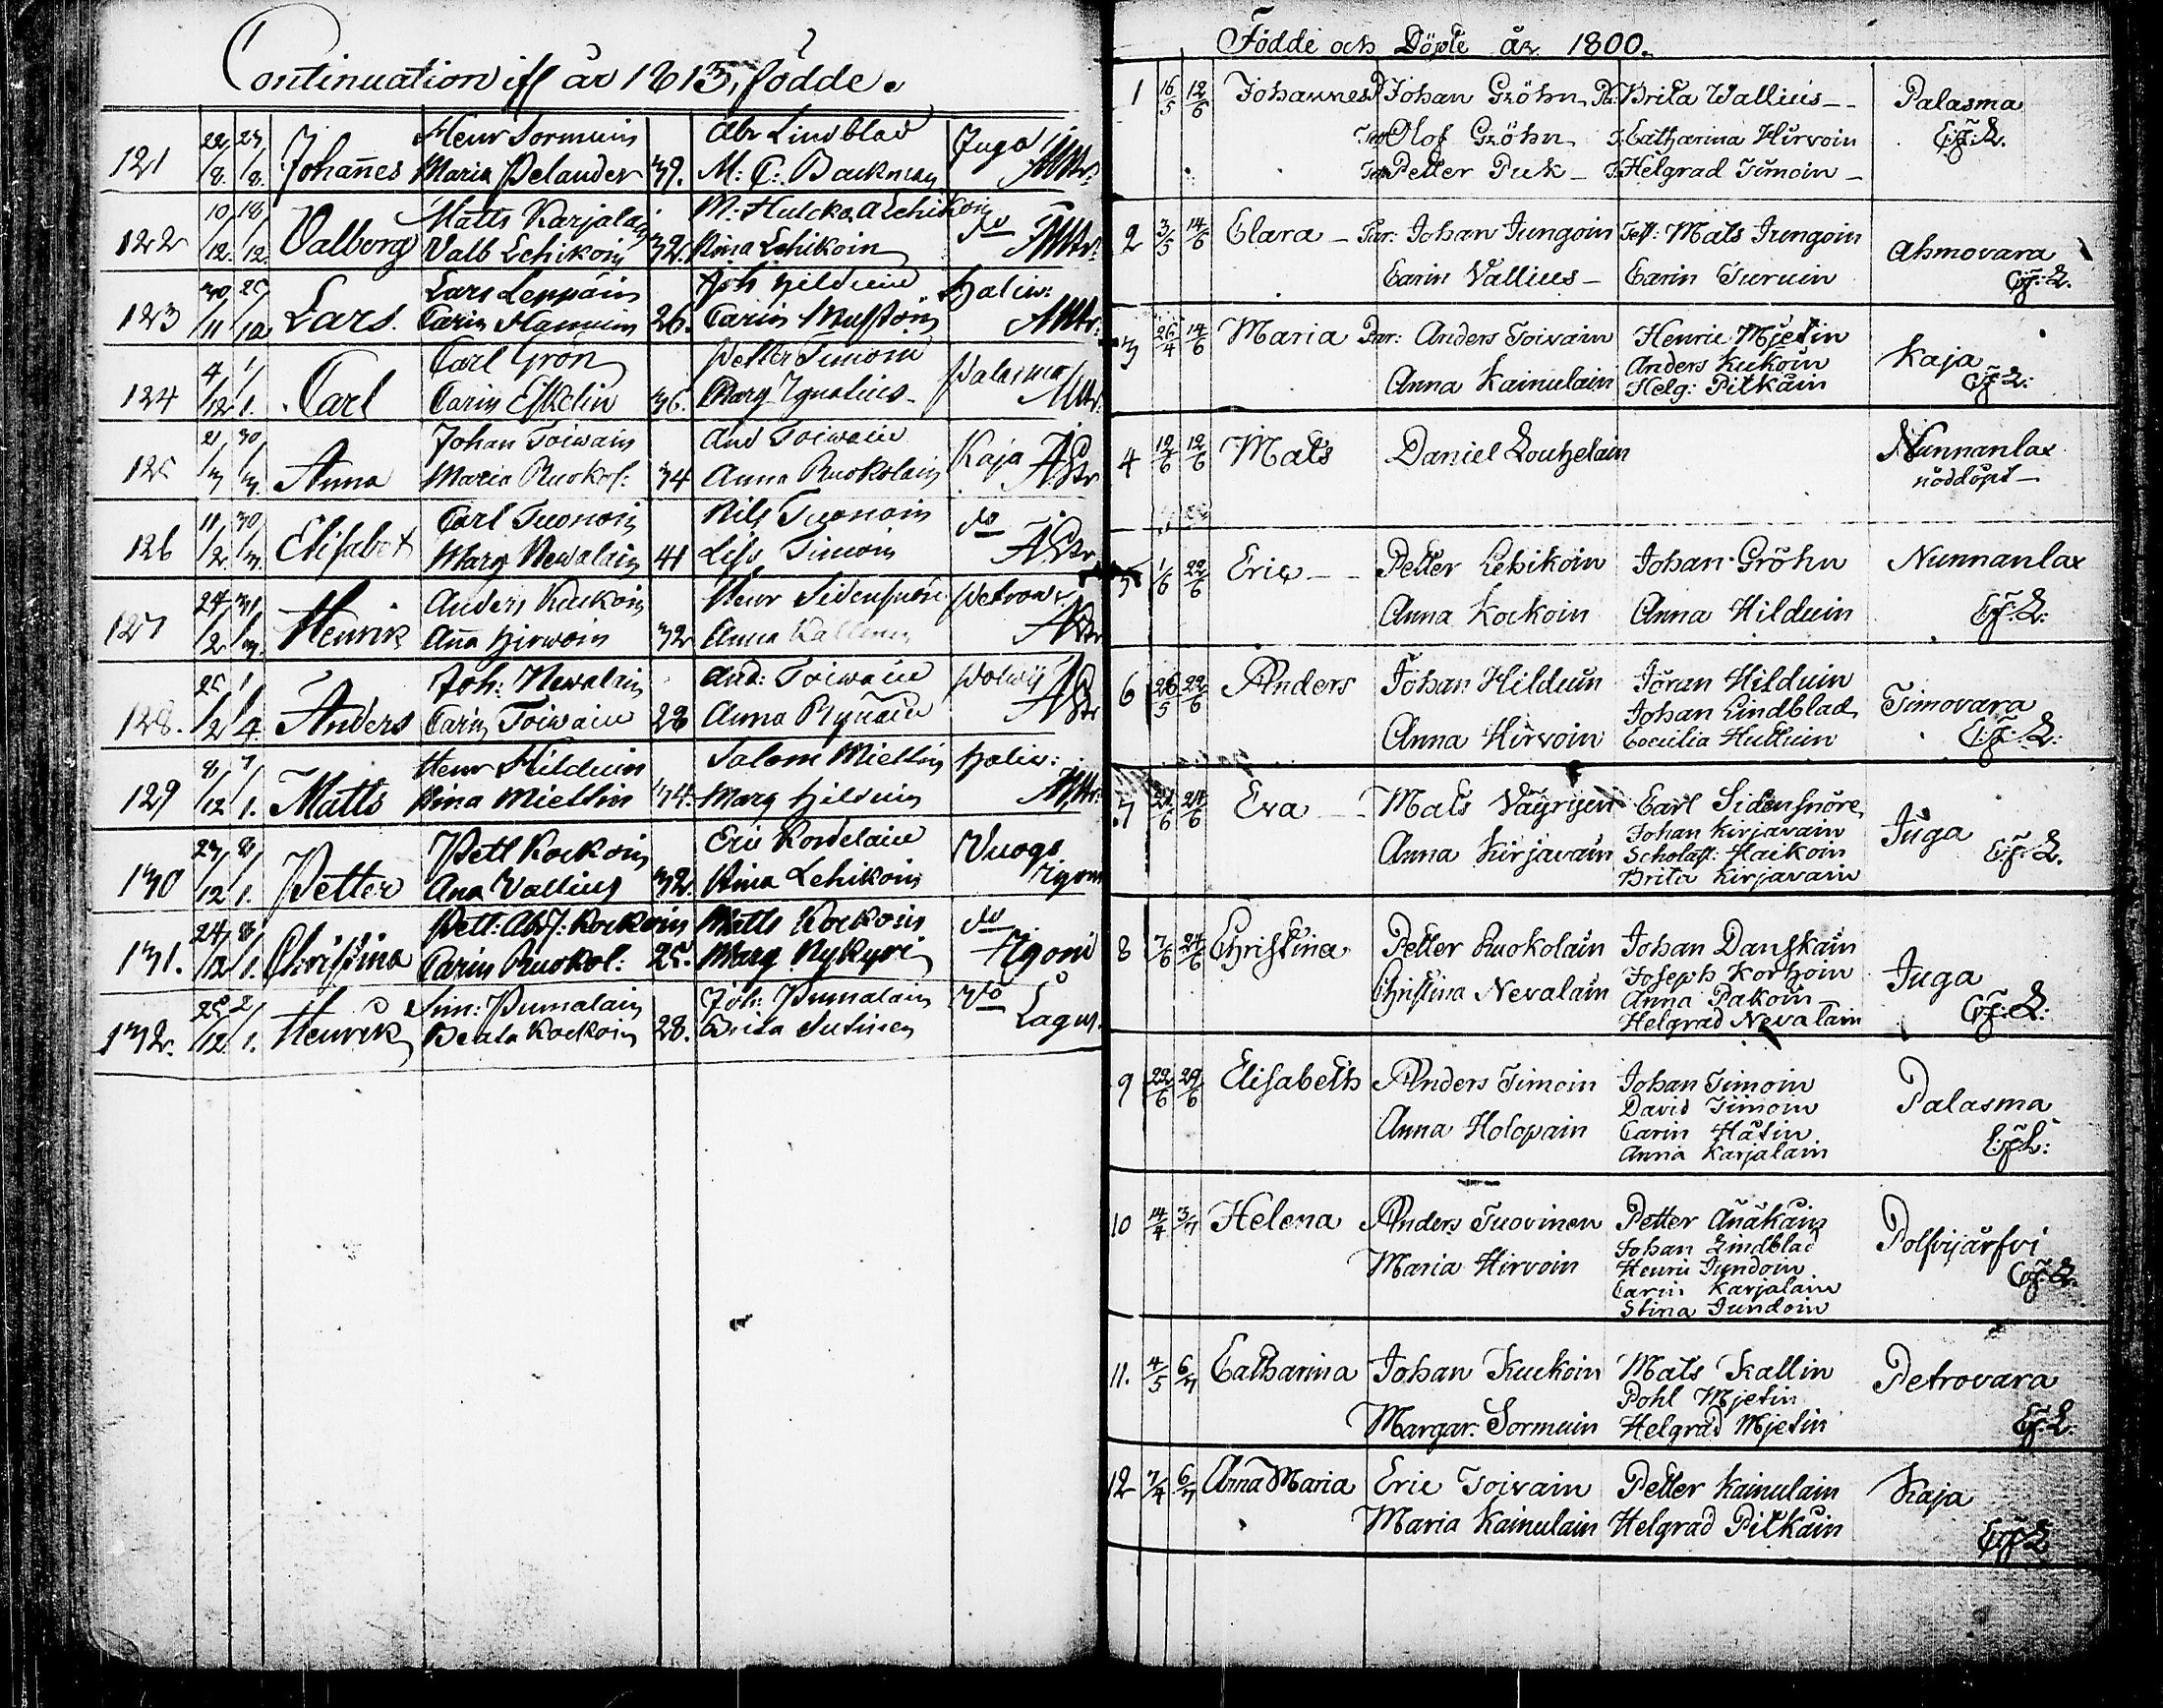 Continuation iff år 1813, födde.
121 22/8. 27/8. Johannes Henr Sormuin Maria Pelander 39. Abr Lindblad M: C: Backman Juga
122 10/12. 18/12. Valborg Matts Karjalain Valb Lehikoin 32. M: Hulcko, A Lehikoin Stina Lehikoin do
123 30/11 25/12. Lars. Lars Leppäin Carin Hamuin 26. Joh Hilduin Carin Mustoin Haliw:
124 4/12 1/1. Carl Carl Grön Carin Eskelin 36. Petter Timoin Marg Ignatius Palasma
125 21/3 30/3. Anna Johan Toiwain Maria Ruokol: 34 And Toiwain Anna Ruokolain Kaja
126 11/2. 30/3. Elisabet Carl Tuonoin Marg Newalain 41 Nils Tuonoin Liso Timoin do
127 24/2 31/3. Henrik Anders Kuckoin Anna Hirwoin 32 Henr Sidensnöre Anna Kallinen Petrow:
128. 25/2 1/4 Anders Joh: Newalain Carin Toiwain 28 And: Toiwain Anna Rynäin Polwij
129 8/12 7/1. Matts Henr Hilduin Stina Miettin 34. Salom Miettin Marg Hilduin Haliw:
130 27/12 8/1. Petter Pett Kockoin Ana Vallius 32. Eric Kordelain Stina Lehikoin Vuogo Agoni
131. 24/12 8/1. Christina Pett: Abr: Kockoin Carin Ruokol: 25. Matts Kockoin Marg Nykyri do Agoni
132. 25/12 2/1. Henrik Sim: Pumalain Beata Kockoin 28. Joh: Pumalain Brita Sutinen do Lagus.
Födde och Döpte år 1800.
1 16/5 12/6 Johannes Johan Gröhn Brita Wallius Palasma
Olof Gröhn Catharina Hirvoin
Petter Puk Helgrad Timoin
2 3/5 14/6 Clara Par: Johan Jungoin Test: Mats Jungoin Ahmovara
Carin Vallius Carin Turuin
3 26/4 14/6 Maria Par: Anders Toivain Henric Mjetin
Anders Kukoin Kaja
Anna Kainulain Helg: Pitkäin
4 12/6 12/6 Mats Daniel Louhelain Nunnanlax
nöddöpt
5 1/6 22/6 Eric Petter Lehikoin Johan Gröhn Nunnanlax
Anna Kockoin Anna Hilduin
6 26/5 22/6 Anders Johan Hilduin Jöran Hilduin
Johan Lindblad Timovara
Anna Hirvoin Coecilia Huttuin
7 24/6 24/6 Eva Mats Väyrynen Carl Sidensnöre
Johan Kirjavain Juga
Anna Kirjavain Scholast: Haikoin
Brita Kirjavain
8 7/6 24/6 Christina Petter Ruokolain Johan Danskain
Joseph Korhoin Juga
Christina Nevalain Anna Pakoin
Helgrad Nevalain
9 22/6 29/6 Elisabeth Anders Timoin Johan Timoin
David Timoin Palasma
Anna Holopain Carin Hätin
Anna Karjalain
10 14/4 3/7 Helena Anders Tuovinen Petter Änäkäin
Johan Lindblad Polfvijärfvi
Maria Hirvoin Henric Jundoin
Carin Karjalain
Stina Jundoin
11. 4/5 6/7 Catharina Johan Kuckoin Mats Kallin Petrovara
Pohl Mjetin
Margar: Sormuin Helgrad Mjetin
12 7/4 6/7 Anna Maria Eric Toivain Petter Kainulain Kaja
Maria Kainulain Helgrad Pitkäin